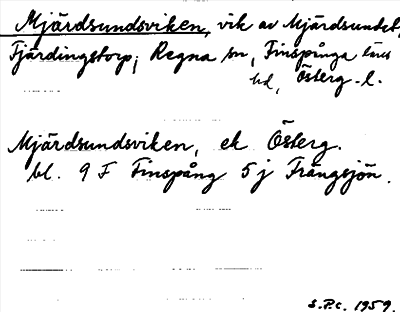 Mjärdsundsviken, vik av Mjärdsundet,
Fjärdingstorp; Regna sn, Finspånga läns
hd, Österg. l.
Mjärdsundsviken, ek Österg.
bl. 9 F Finspång 5 j Trängsjön.
S.P.C. 1959.